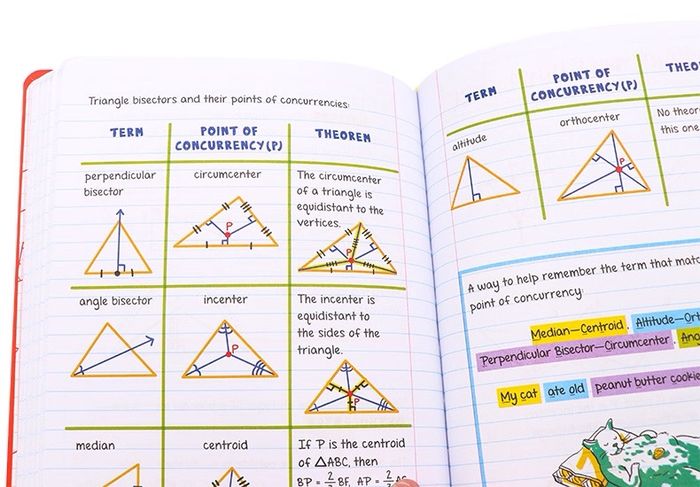 Triangle bisectors and their points of concurrencies:
TERM
POINT OF
CONCURRENCY(P)
THEOREM
perpendicular
bisector
circumcenter
The circumcenter
of a triangle is
equidistant to the
vertices.
P
P
angle bisector
incenter
The incenter is
equidistant to
the sides of the
triangle.
P
P
median
centroid
If P is the centroid
of △ABC, then
BP = 2/3 BF, AP = 2/3
TERM
POINT OF
CONCURRENCY(P)
altitude
orthocenter
No
this one
P
A way to help remember the term that
point of concurrency:
Median—Centroid,
Perpendicular Bisector—Circumcenter,
My cat ate old peanut butter